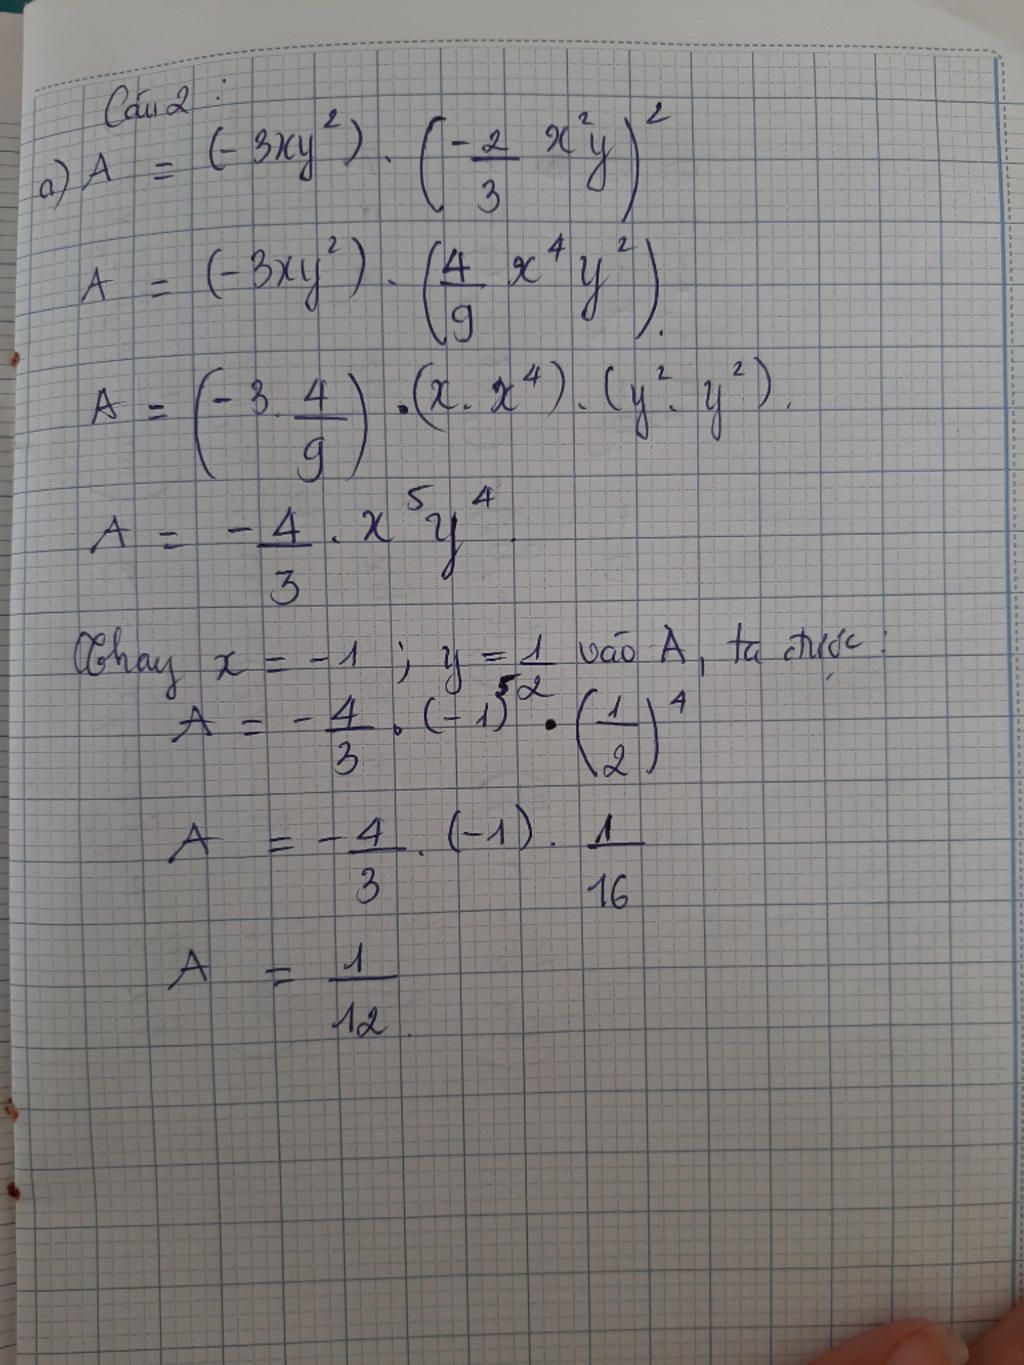 Câu 2 :
a) A = (-3xy²) . (-2/3 x²y)²
A = (-3xy²) . (4/9 x⁴y²).
A = (-3 . 4/9) . (x . x⁴) . (y² . y²).
A = -4/3 . x⁵y⁴.
Thay x = -1 ; y = 1/2 vào A, ta được :
A = -4/3 . (-1)⁵ . (1/2)⁴
A = -4/3 . (-1) . 1/16
A = 1/12.